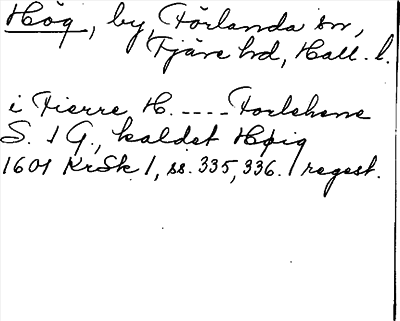 Hög, by, Förlanda sn,
Fjäre hd, Hall. l.
i Fierre H. ---- Forlehene
S. 1 G., kaldet Høig
1601 KrSk 1, ss. 335, 336. regest.